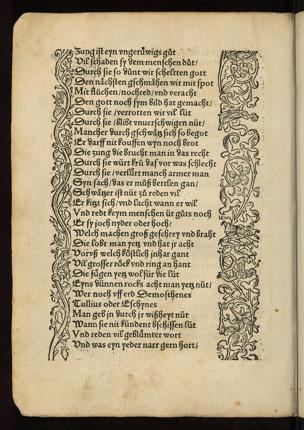 Zung ist eyn vngerüwigs güt
Vil schaden sy dem menschen düt/
Durch sie so dünt wir schelten gott
Den nächsten gschmähen wir mit spot
Mit flüchen/nochred/vnd veracht
Den gott noch sym bild hat gemacht/
Durch sie/verrotten wir vil lüt
Durch sie/blibt vnuerschwigen nüt/
Mancher durch gschwätz sich so begot
Er darff nit kouffen wyn noch brot
Die zung die brucht man in das recht
Durch sie würt krũ daß vor was schlecht
Durch sie/verlürt manch armer man
Syn sach/das er müß bettlen gan/
Schwätzer ist nüt zů reden vil
Er kitzt sich/vnd lacht wann er wil
Vnd redt keym menschen üt güts noch
Er sy joch nyder oder hoch/
Welch machen groß geschrey vnd braßt
Die lobt man yetz vnd hat jr acht
Vorvß welch köstlich jnhar gant
Vil grosser röck vnd ring an hant
Die fügen yetz wol für die lüt
Eyns dünnen rocks acht man yetz nüt/
Wer noch vff erd Demosthenes
Tullius oder Eschynes
Man geb jn durch jr wißheyt nüt
Wann sie nit kündent bschissen lüt
Vnd reden vil geblümter wort
Vnd was eyn yeder narr gern hort/